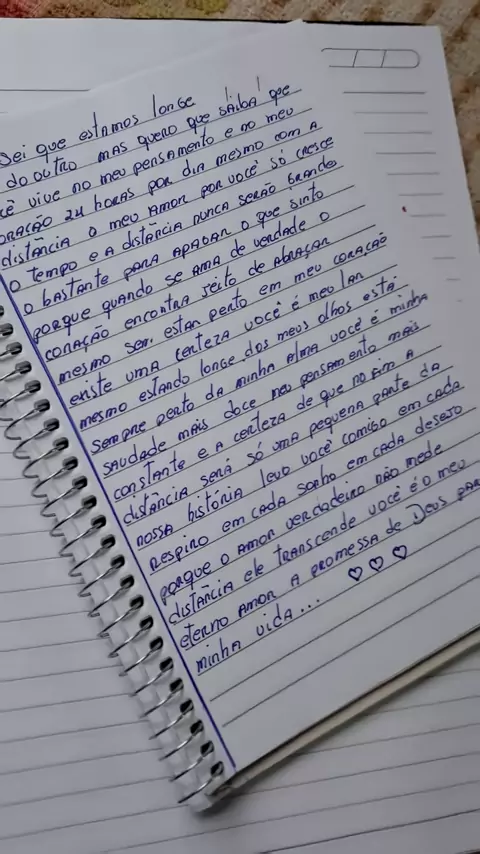 Sei que estamos longe
do outro mas quero que saiba! que
cê vive no meu pensamento e no meu
oração 24 horas por dia mesmo com a
distância o meu amor por você só cresce
o tempo e a distância nunca serão grandes
o bastante para apagar o que sinto
porque quando se ama de verdade o
coração encontra jeito de abraçar
mesmo sem estar perto em meu coração
existe uma certeza você é meu lar
mesmo estando longe dos meus olhos está
sempre perto da minha alma você é minha
saudade mais doce meu pensamento mais
constante e a certeza de que no fim a
distância será só uma pequena parte da
nossa história levo você comigo em cada
respiro em cada sonho em cada desejo
porque o amor verdadeiro não mede
distância ele transcende você é o meu
eterno amor a promessa de Deus par
minha vida... ♡ ♡ ♡